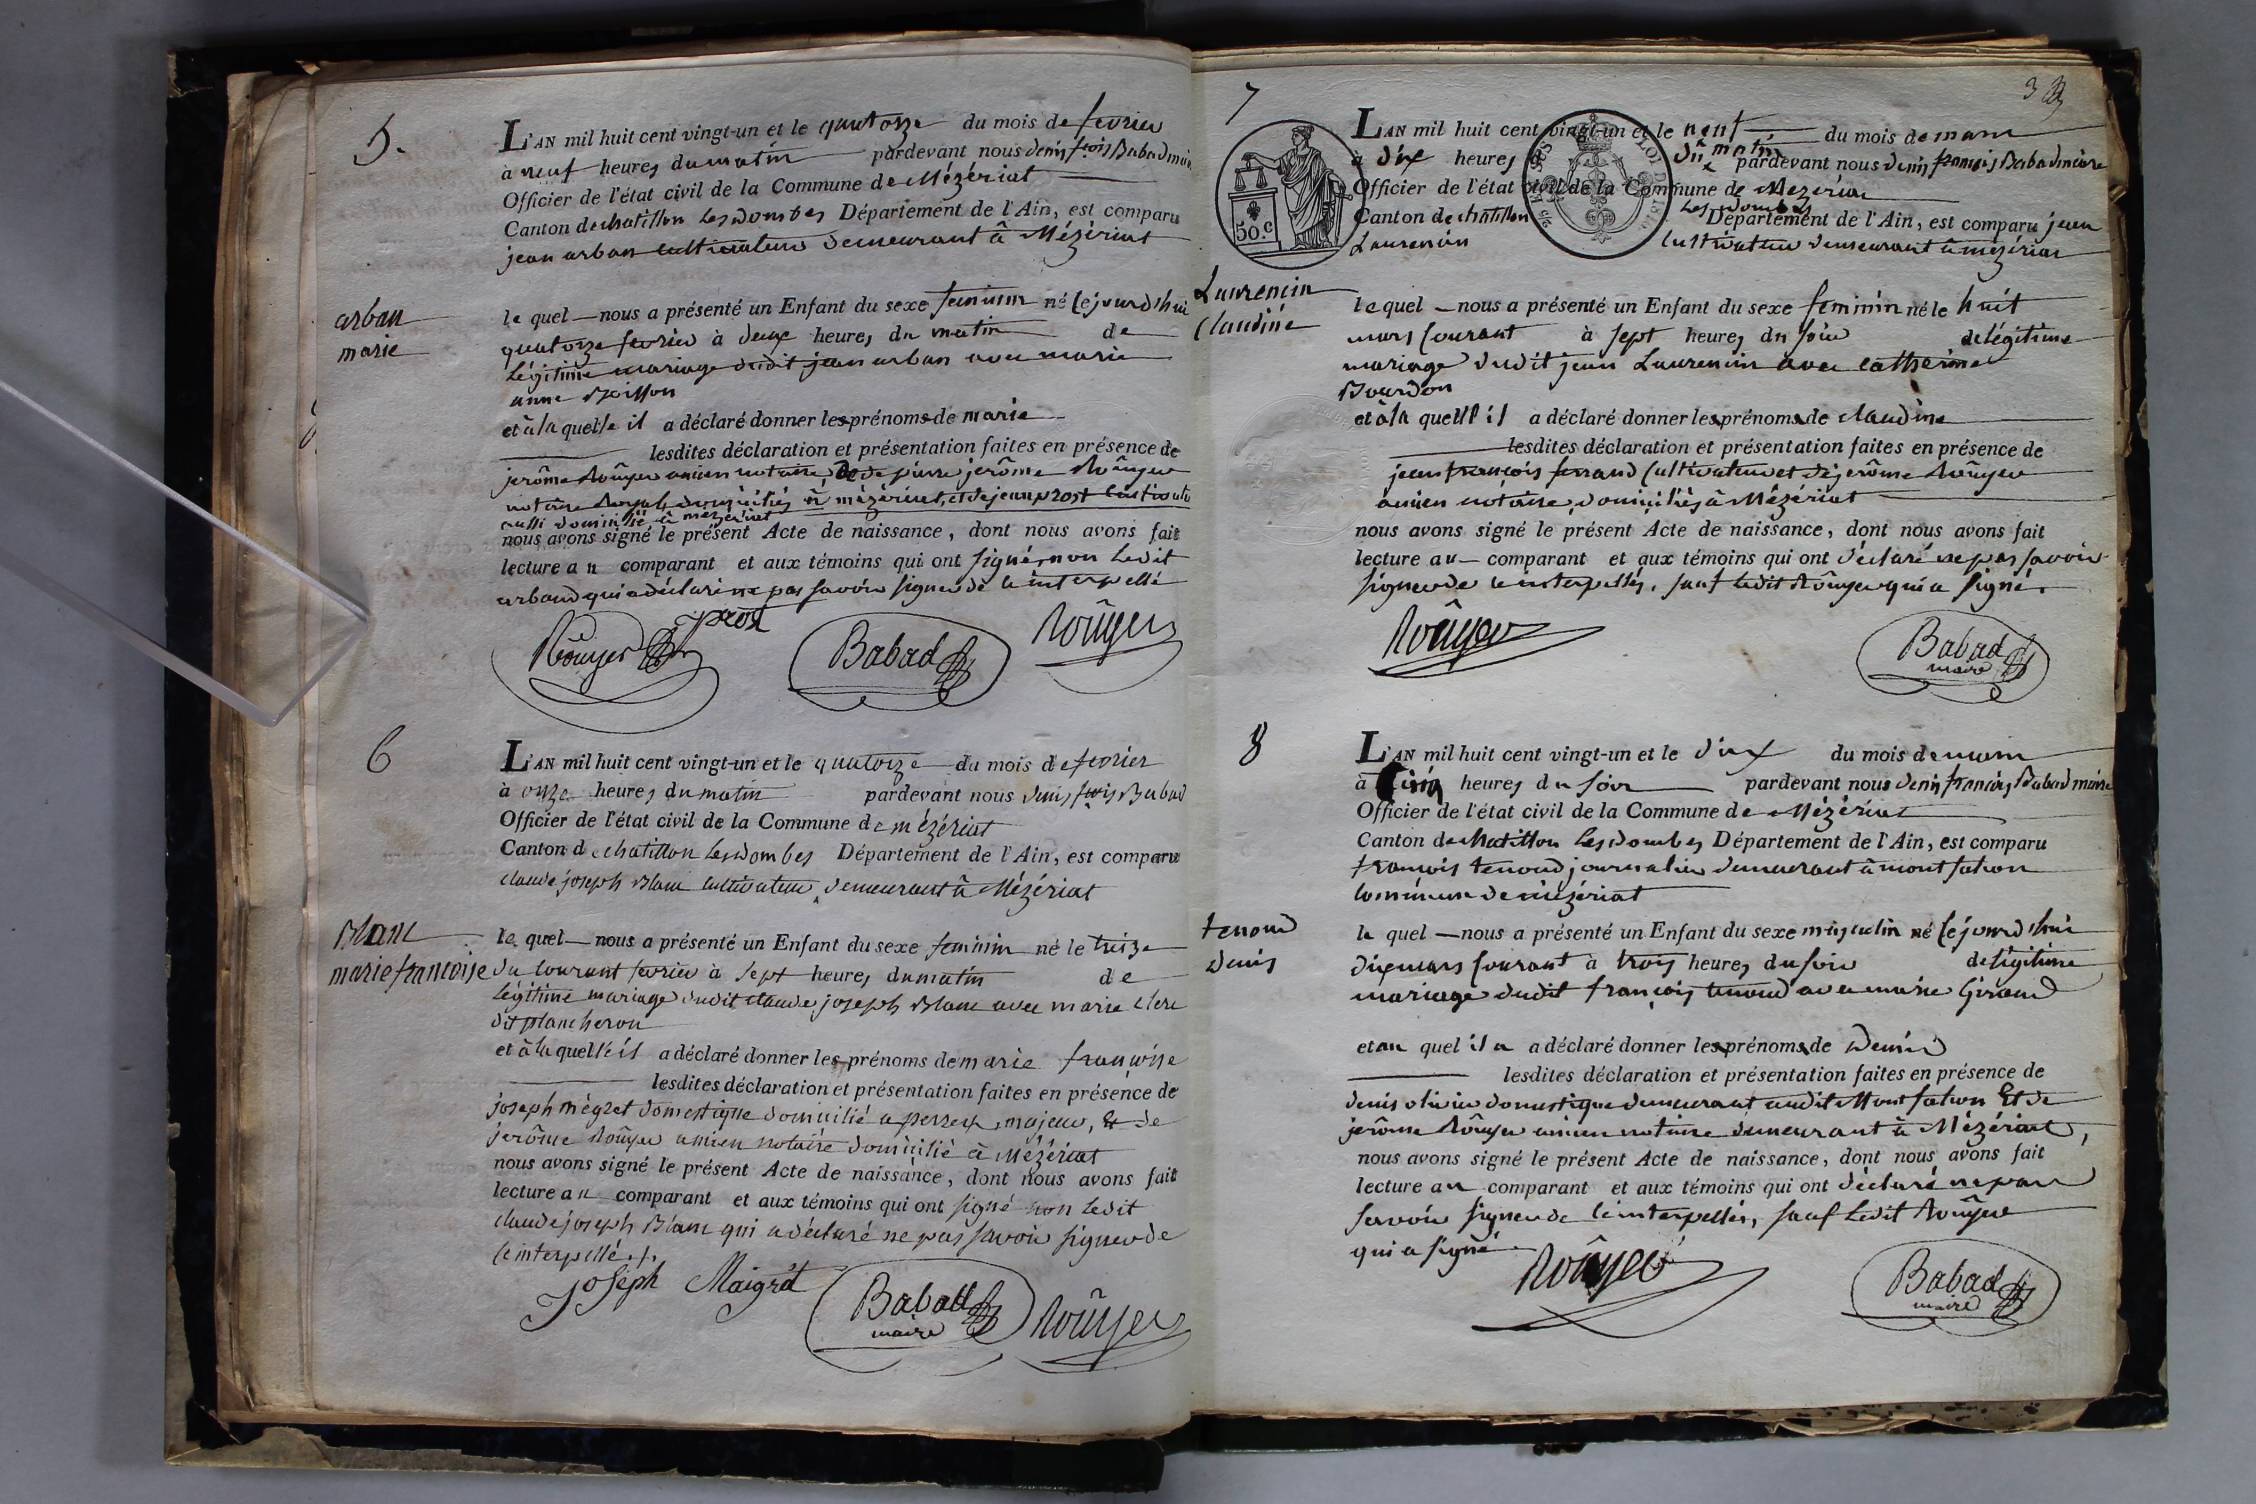 5.
L'AN mil huit cent vingt-un et le quatorze du mois de fevrier
à neuf heures du matin pardevant nous denis fçois Babad maire
Officier de l'état civil de la Commune de Mézériat
Canton de chatillon Les Dombes Département de l'Ain, est comparu
jean arban cultivateur demeurant à Mézériat
arban
marie
le quel nous a présenté un Enfant du sexe feminin né cejourd'hui
quatorze fevrier à deux heures du matin de
Légitime mariage dudit jean arban avec marie
anne Boisson
et à la quelle il a déclaré donner les prénoms de marie
lesdites déclaration et présentation faites en présence de
jerôme Roûyer ancien notaire, de pierre jerôme Roûyer
notaire Royal domiciliés à mézériat, et de jean prost cultivateur
aussi domicilié à mézériat
nous avons signé le présent Acte de naissance, dont nous avons fait
lecture au comparant et aux témoins qui ont signé, non Ledit
arband qui a déclaré ne pas savoir signer de ce interpellé
prost
Roûyer Babad Roûyer
6
L'AN mil huit cent vingt-un et le quatorze du mois de fevrier
à onze heures du matin pardevant nous denis fçois Babad
Officier de l'état civil de la Commune de mézériat
Canton de chatillon Les Dombes Département de l'Ain, est comparu
claude joseph Blanc cultivateur, demeurant à Mézériat
Blanc
marie francoise
le quel nous a présenté un Enfant du sexe feminin né le treize
du courant fevrier à sept heures du matin de
Légitime mariage dudit claude joseph Blanc avec marie clerc
dit plancheron
et à la quelle il a déclaré donner les prénoms de marie françoise
lesdites déclaration et présentation faites en présence de
joseph mègret domestique domicilié a perrex, majeur, & de
jerôme Roûyer ancien notaire domicilié à Mézériat
nous avons signé le présent Acte de naissance, dont nous avons fait
lecture au comparant et aux témoins qui ont signé non Ledit
claude joseph Blanc qui a déclaré ne pas savoir signer de
ce interpellé ./.
Joseph Maigrèt Babad maire Roûyer
7
33
50.c
L'AN mil huit cent vingt-un et le neuf du mois de mars
à dix heures du matin pardevant nous denis françois Babad maire
Officier de l'état civil de la Commune de Mézériat
Canton de chatillon Les Dombes Département de l'Ain, est comparu jean
Laurencin cultivateur demeurant à mézériat
Laurencin
Claudine
le quel nous a présenté un Enfant du sexe feminin né le huit
mars courant à sept heures du soir de légitime
mariage dudit jean Laurencin avec catherine
Bourdon
et à la quelle il a déclaré donner les prénoms de claudine
lesdites déclaration et présentation faites en présence de
jean françois ferrand cultivateur et de jerôme Roûyer
ancien notaire, domiciliés à Mézériat
nous avons signé le présent Acte de naissance, dont nous avons fait
lecture au comparant et aux témoins qui ont déclaré ne pas savoir
signer de ce interpellés, sauf Ledit Roûyer qui a signé.
Roûyer Babad maire
8
L'AN mil huit cent vingt-un et le dix du mois de mars
à cinq heures du soir pardevant nous denis françois Babad maire
Officier de l'état civil de la Commune de Mézériat
Canton de chatillon Les Dombes Département de l'Ain, est comparu
françois tenoud journalier demeurant à montfalcon
commune de mézériat
tenoud
Denis
le quel nous a présenté un Enfant du sexe masculin né cejourd'hui
dix mars courant à trois heures du soir de légitime
mariage dudit françois tenoud avec marie Giraud
et au quel il a a déclaré donner les prénoms de Denis
lesdites déclaration et présentation faites en présence de
denis olivier domestique demeurant audit Montfalcon Et de
jerôme Roûyer ancien notaire demeurant à Mézériat,
nous avons signé le présent Acte de naissance, dont nous avons fait
lecture au comparant et aux témoins qui ont déclaré ne pas
savoir signer de ce interpellés, sauf Ledit Roûyer
qui a signé.
Roûyer Babad maire